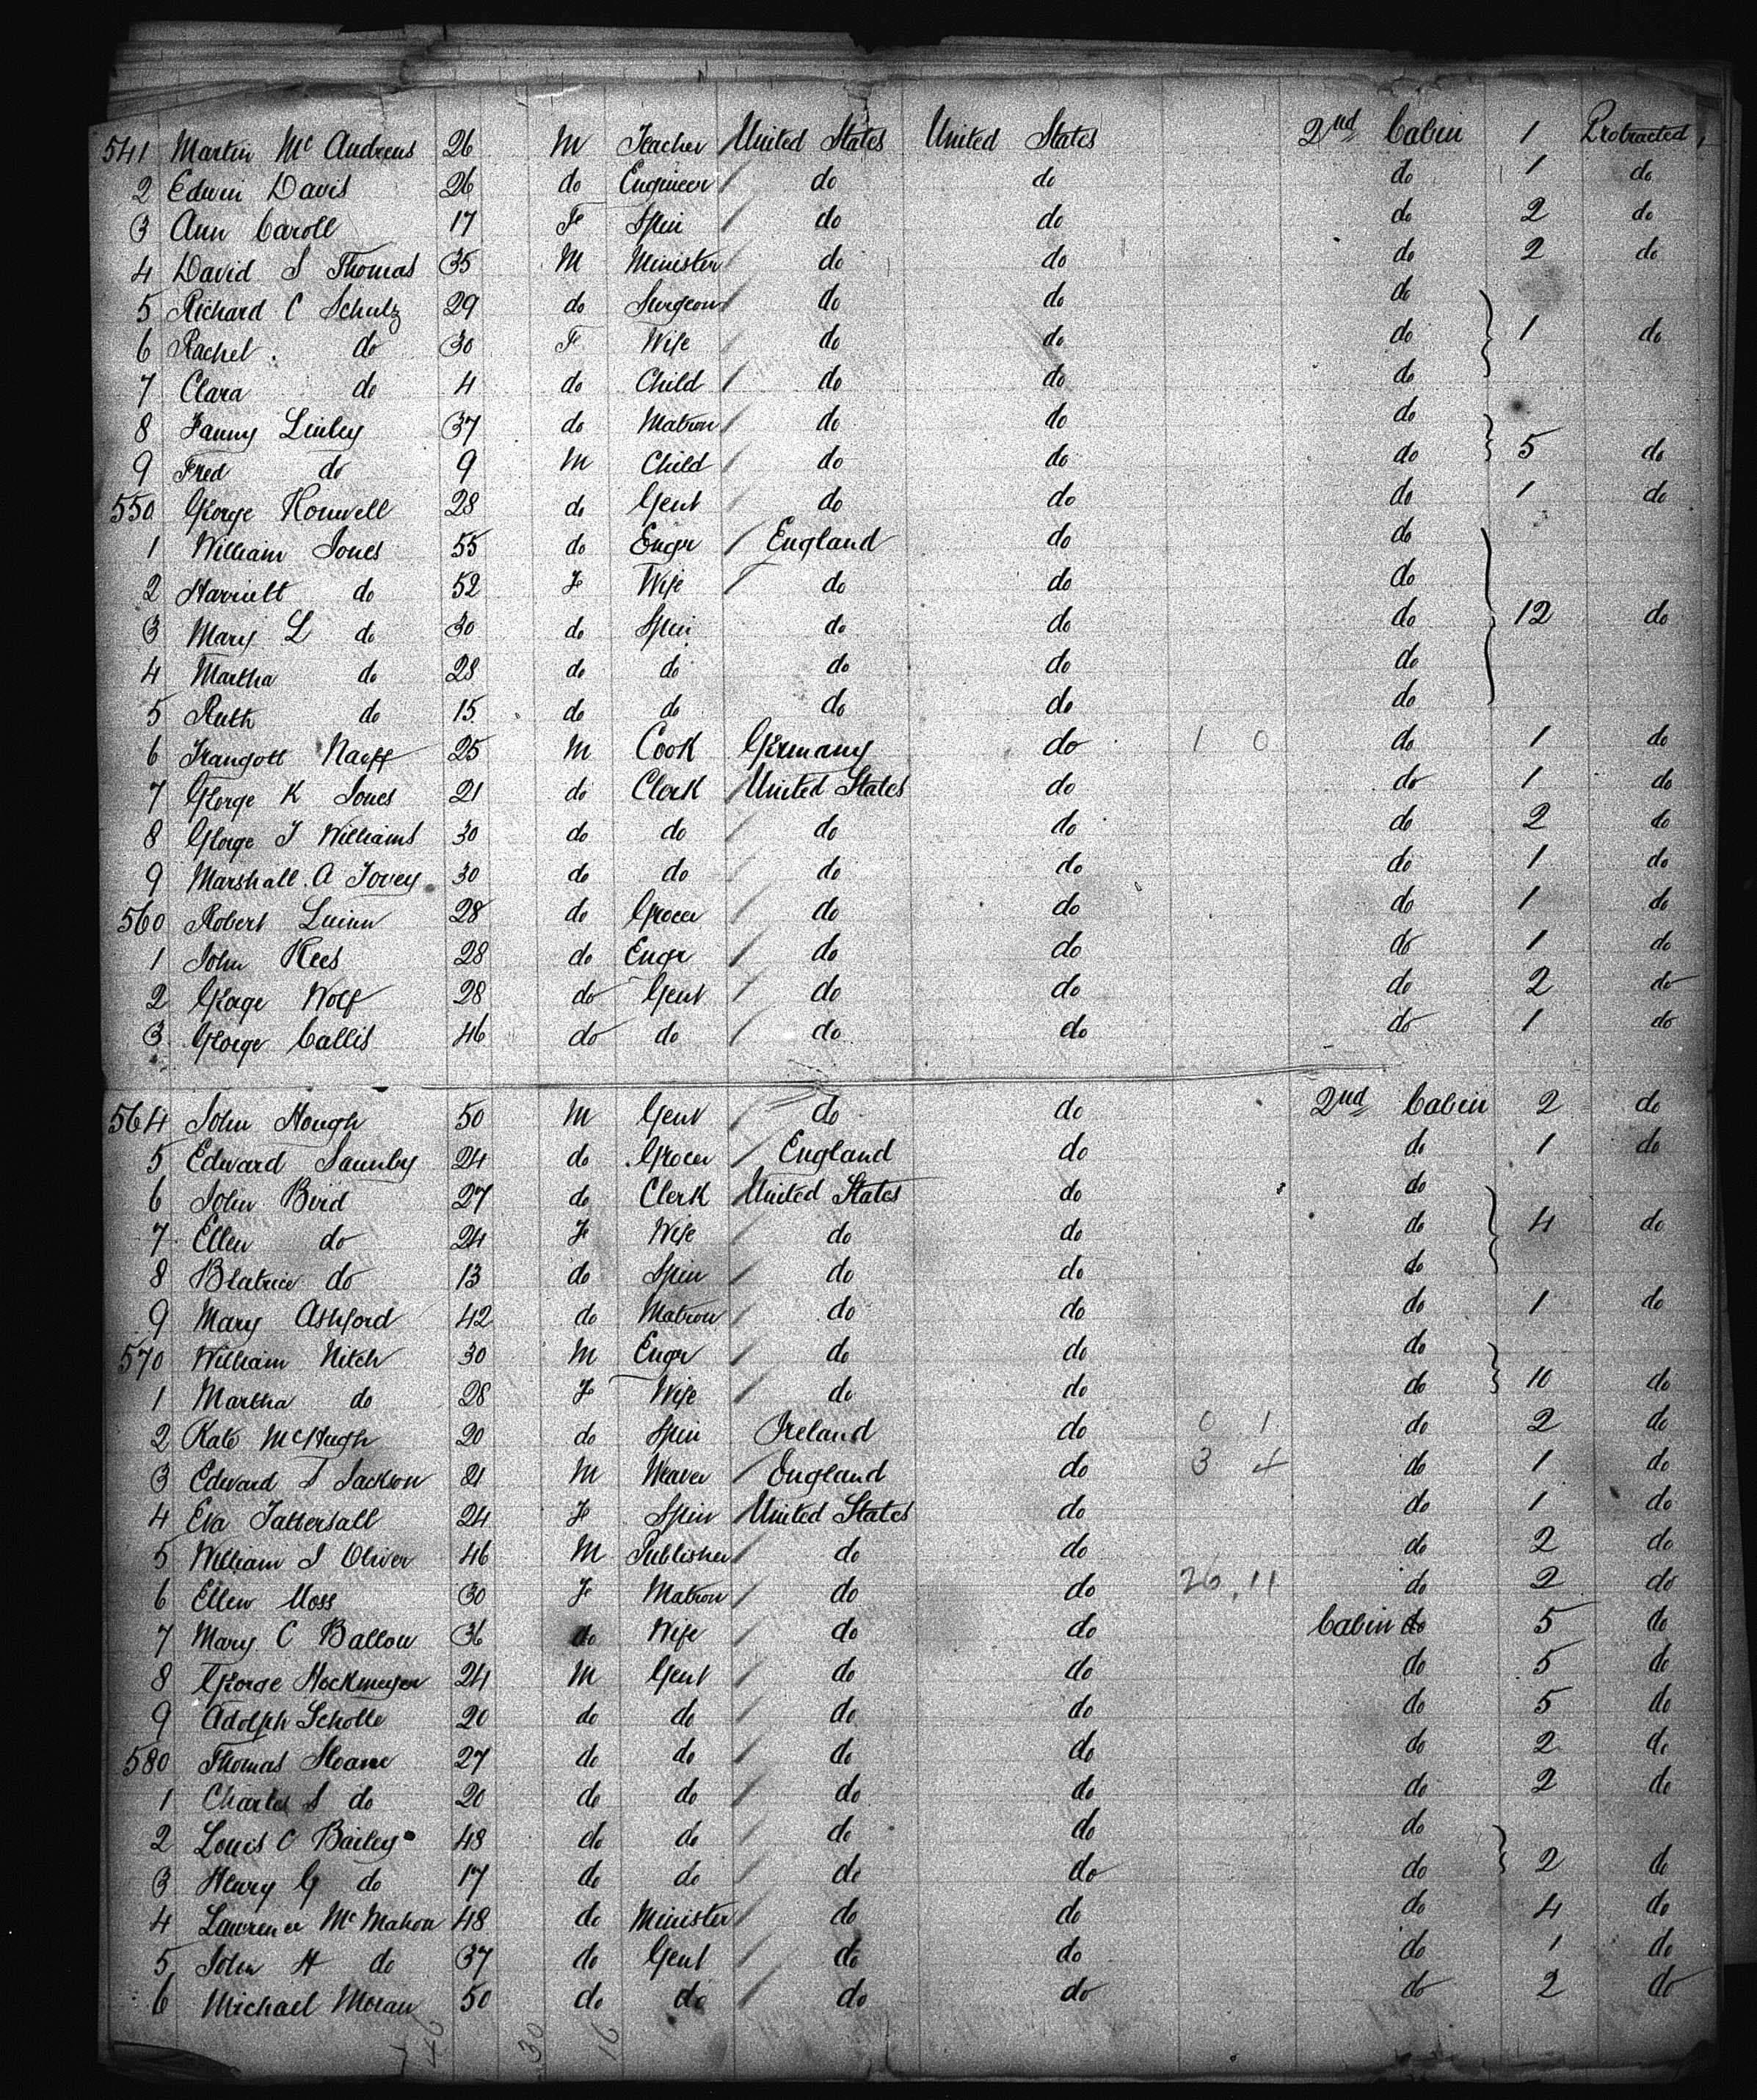 541 Martin Mc Andrews 26 M Teacher United States United States 2nd Cabin 1 Protracted
2 Edwin Davis 26 do Engineer do do do 1 do
3 Ann Caroll 17 F Spin do do do 2 do
4 David S Thomas 35 M Minister do do do 2 do
5 Richard C Schulz 29 do Surgeon do do do
6 Rachel do 30 F Wife do do do 1 do
7 Clara do 4 do Child do do do
8 Fanny Linley 37 do Matron do do do
9 Fred do 9 M Child do do do 5 do
550 George Honwell 28 do Gent do do do 1 do
1 William Jones 55 do Engr England do do
2 Harriett do 52 F Wife do do do
3 Mary L do 30 do Spin do do do 12 do
4 Martha do 28 do do do do do
5 Ruth do 15 do do do do do
6 Trangott Naeff 25 M Cook Germany do 1 0 do 1 do
7 George K Jones 21 do Clerk United States do do 1 do
8 George T Williams 30 do do do do do 2 do
9 Marshall A Tovey 30 do do do do do 1 do
560 Robert Quinn 28 do Grocer do do do 1 do
1 John Rees 28 do Engr do do do 1 do
2 George Wolf 28 do Gent do do do 2 do
3 George Callis 46 do do do do do 1 do
564 John Hough 50 M Gent do do 2nd Cabin 2 do
5 Edward Saunby 24 do Grocer England do do 1 do
6 John Bird 27 do Clerk United States do do
7 Ellen do 24 F Wife do do do 4 do
8 Beatrice do 13 do Spin do do do
9 Mary Ashford 42 do Matron do do do 1 do
570 William Nitch 30 M Engr do do do
1 Martha do 28 F Wife do do do 10 do
2 Kate McHugh 20 do Spin Ireland do 0 1 do 2 do
3 Edward S Jackson 21 M Weaver England do 3 4 do 1 do
4 Eva Tattersall 24 F Spin United States do do 1 do
5 William J Oliver 46 M Publisher do do do 2 do
6 Ellen Moss 30 F Matron do do 26 11 do 2 do
7 Mary C Ballou 36 do Wife do do Cabin do 5 do
8 George Hockmeyer 24 M Gent do do do 5 do
9 Adolph Scholle 20 do do do do do 5 do
580 Thomas Sloane 27 do do do do do 2 do
1 Charles S do 20 do do do do do 2 do
2 Louis C Bailey 48 do do do do do
3 Henry G do 17 do do do do do 2 do
4 Lawrence McMahon 48 do Minister do do do 4 do
5 John H do 37 do Gent do do do 1 do
6 Michael Moran 50 do do do do do 2 do
46 30 16